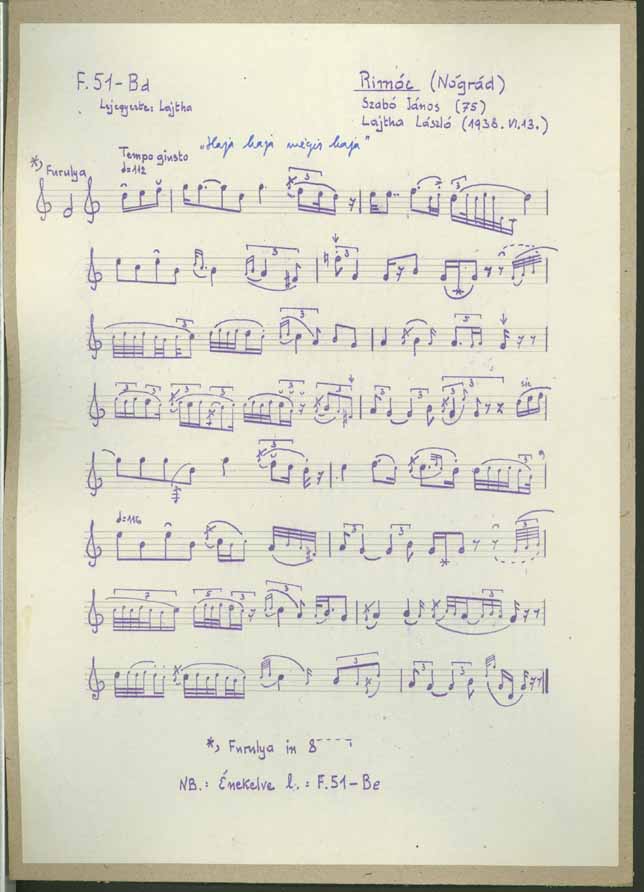 F.51-Bd
Lejegyezte: Lajtha
Rimóc (Nógrád)
Szabó János (75)
Lajtha László (1938. VI.13.)
„Hajă hajă mégis hajă"
*) Furulya
Tempo giusto
♩=112
3
3
3
3
3
3
5
3 3 3 3 3 3 3 3 3 3
sic
3 3
♩=116
3 3 3
7 5 3 3 3
3 3 3
*) Furulya in 8
NB.: Énekelve l.: F.51-Be